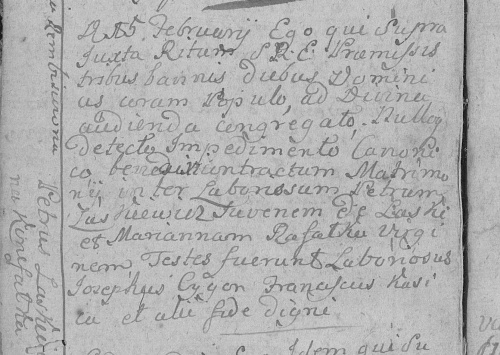 R. A. 5 Februarij Ego qui Supra
Juxta Ritum S. R. E. Præmissis
tribus bannis diebus Domini
cis coram Populo, ad Divina
audienda congregato, Nullo
detecto Impedimento Canoni
co, benedixi contractum Matrimo
nij inter Laboriosum Petrum
Juvenem de Laski
et Mariannam Rafałku Virgi
nem Testes fuerunt Laboriosus
Josephus Cygon Franciscus Kasi
ca et alii fide digni
Idem qui Su
Petrus